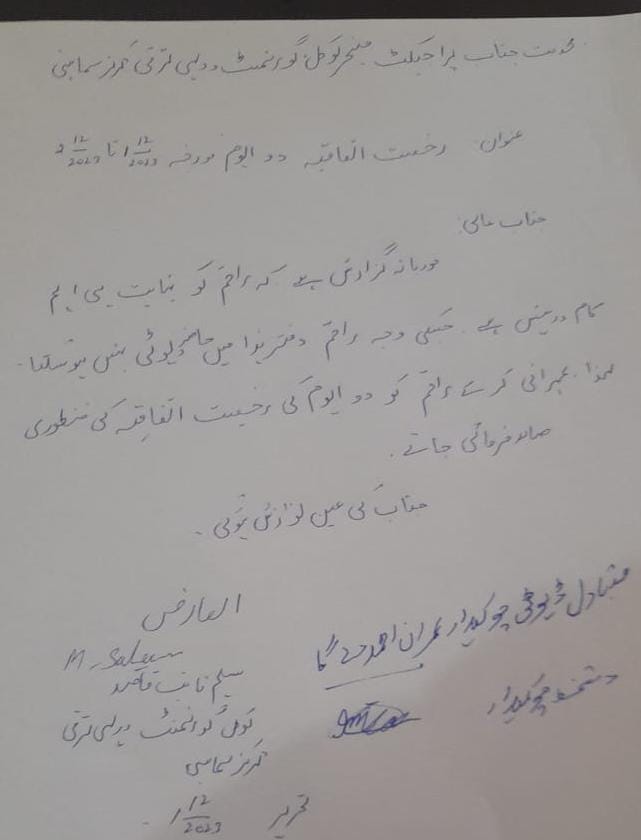 بخدمت جناب پراجیکٹ منیجر لوکل گورنمنٹ و دیہی ترقی مرکز سماہنی
عنوان رخصت اتفاقیہ دو الیوم مورخہ 1 12/2023 تا 2 12/2023
جناب عالی
مودبانہ گزارش ہے کہ راقم کو نہایت ہی اہم
کام درپیش ہے۔ جسکی وجہ راقم دفتر ہذا میں حاضر ڈیوٹی نہیں ہو سکتا۔
لہذا مہربانی کر کے راقم کو دو الیوم کی رخصت اتفاقیہ کی منظوری
صادر فرمائی جائے۔
جناب کی عین نوازش ہوگی۔
العارض
M. Saleem
سلیم نائب قاصد
لوکل گورنمنٹ دیہی ترقی
مرکز سماہنی
تحریر 1 12/2023
متبادل ڈیوٹی چوکیدار عمران احمد دے گا
دستخط چوکیدار